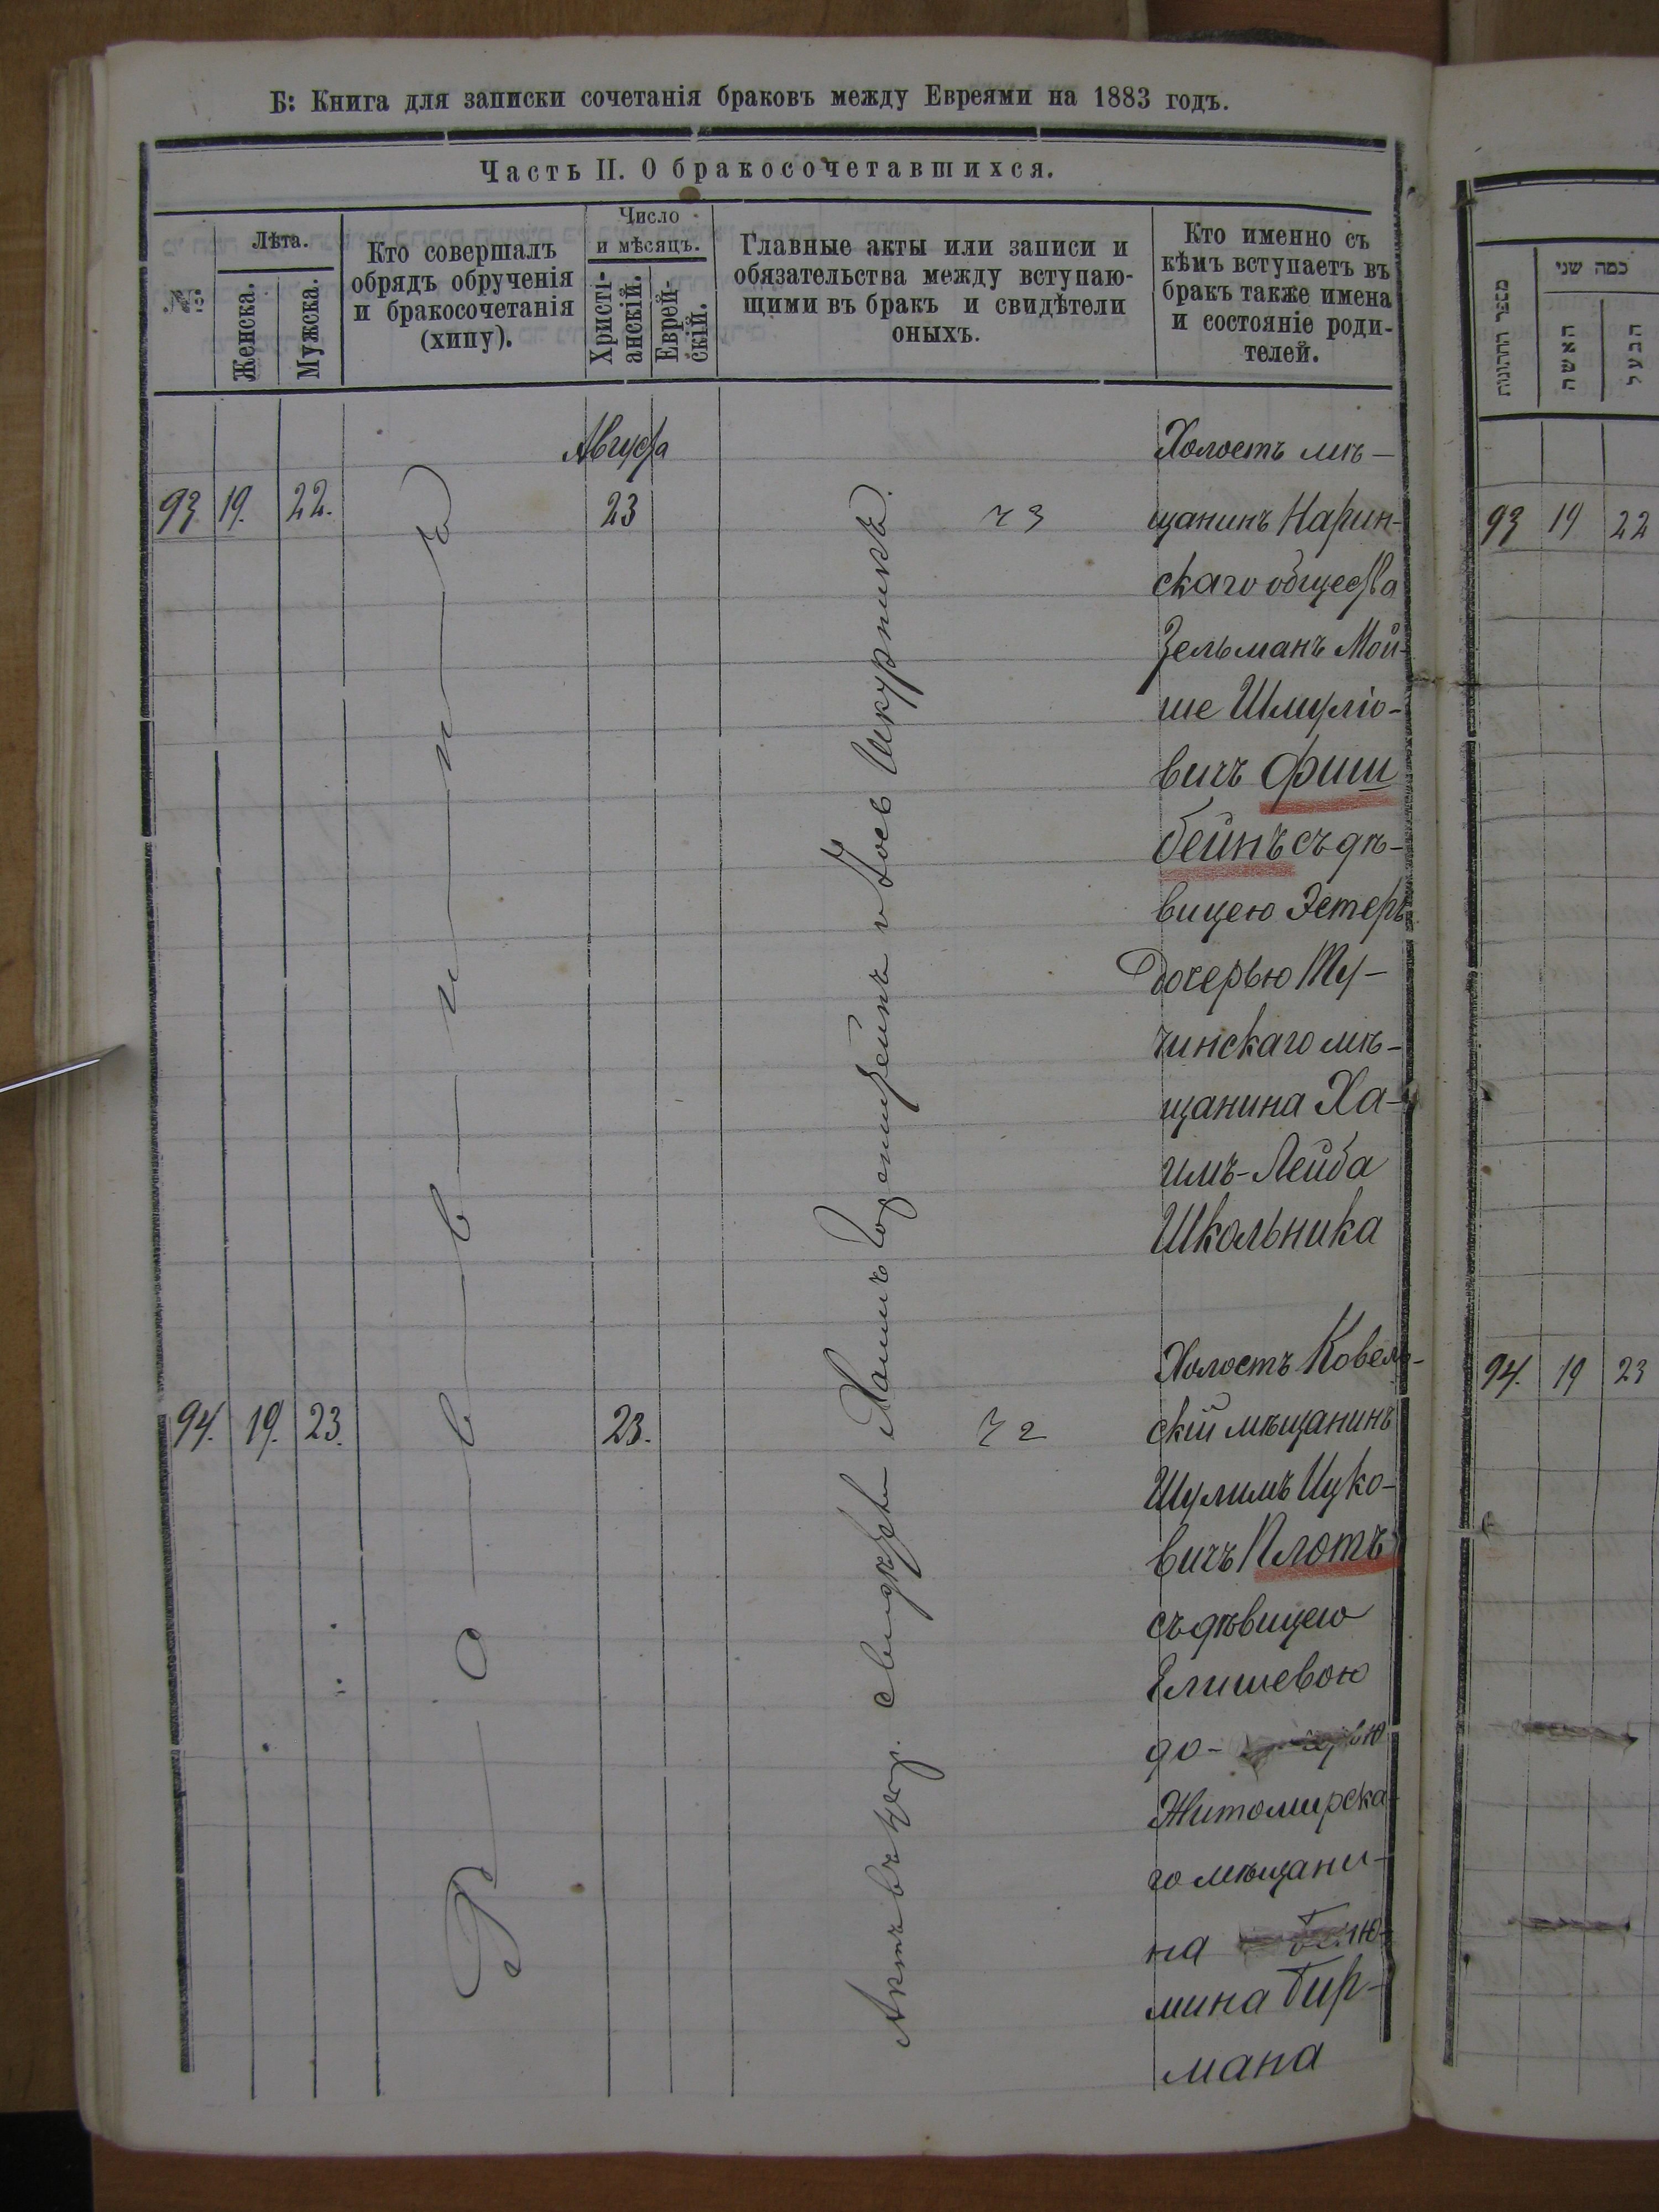 Б: Книга для записки сочетанія браковъ между Евреями на 1883 годъ.
Часть II. О бракосочетавшихся.
№
Лѣта.
Женска.
Мужска.
Кто совершалъ
обрядъ обрученія
и бракосочетанія
(хипу).
Число
и мѣсяцъ.
Христі-
анскій.
Еврей-
скій.
Главные акты или записи и
обязательства между вступаю-
щими въ бракъ и свидѣтели
оныхъ.
Кто именно съ
кѣмъ вступаетъ въ
бракъ также имена
и состояніе роди-
телей.
Августа
93 19. 22. 23
Раввинъ
Актъ въ свидѣтели Хаимъ и Іось Шкурникъ.
73
Холостъ мѣ-
щанинъ Нарин-
скаго общества
Зельманъ Мой-
ше Шмуліо-
вичъ Фиш
бейнъ съ дѣ-
вицею Эстеръ
дочерью Ту-
чинскаго мѣ-
щанина Ха-
имъ-Лейба
Школьника
94. 19. 23. 23.
72
Холостъ Ковель-
скій мѣщанинъ
Шулимъ Ицко-
вичъ Плотъ
съ дѣвицею
Елишевою
до-
Житомирска-
го мѣщани-
на
мина Бир-
мана
מספר החתונות
כמה שני
האשה
הבעל
93 19 22
94. 19 23